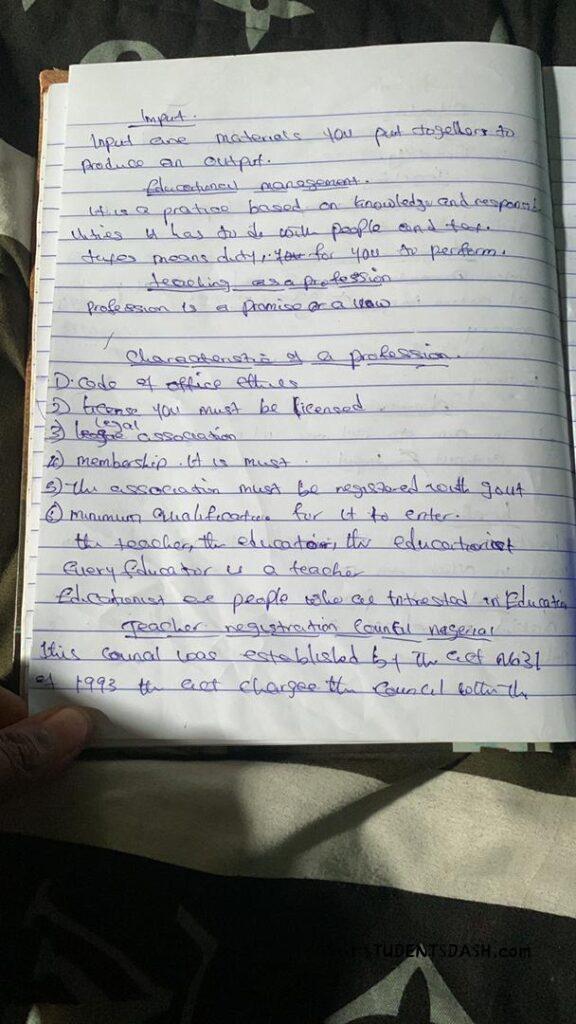 Input.
Input are materials you put togethers to
produce an output.
Educational management.
It is a pratice based on knowledge and responsi
lities it has to do with people and tax.
taxes means duty, for you to perform.
teaching as a profession
Profession is a promise or a vow
Characteristic of a profession.
1). Code of office ethics
2) license you must be licensed
3) legal association
4) membership. It is must.
5) The association must be registered with govt
6) minimum qualification for it to enter.
the teacher, the education, the educationist
Every Educator is a teacher
Educationist are people who are Intrested in Education
Teacher registration Council
This council was established by the act No31
of 1993 the act charges the Council with the
STUDENTSDASH.com